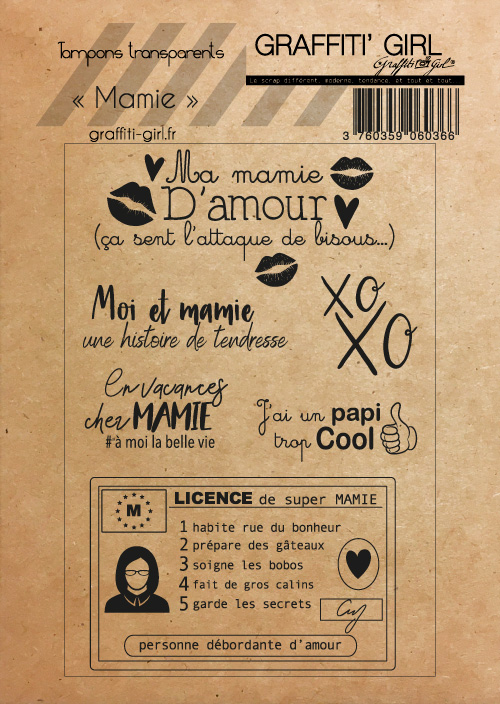 Tampons transparents
GRAFFITI' GIRL
Graffiti Girl
Le scrap différent, moderne, tendance, et tout et tout.
« Mamie »
graffiti-girl.fr
3 760359 060366
Ma mamie
D'amour
(ça sent l'attaque de bisous...)
Moi et mamie
une histoire de tendresse
XO
XO
En vacances
chez MAMIE
#à moi la belle vie
J'ai un papi
trop Cool
M
LICENCE de super MAMIE
1 habite rue du bonheur
2 prépare des gâteaux
3 soigne les bobos
4 fait de gros calins
5 garde les secrets
personne débordante d'amour